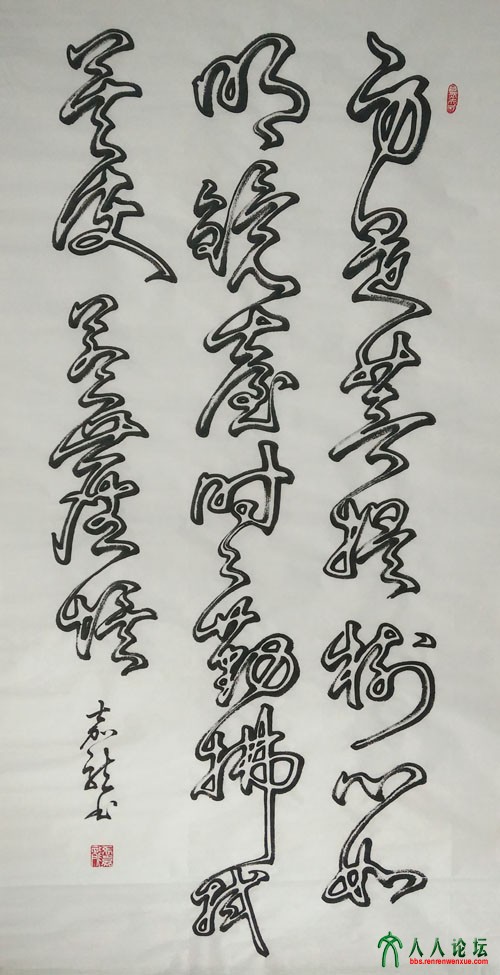 身是菩提樹心如
明鏡臺时々勤拂拭
莫使惹塵埃
嘉龍书
人人论坛
bbs.renrenwenxue.com